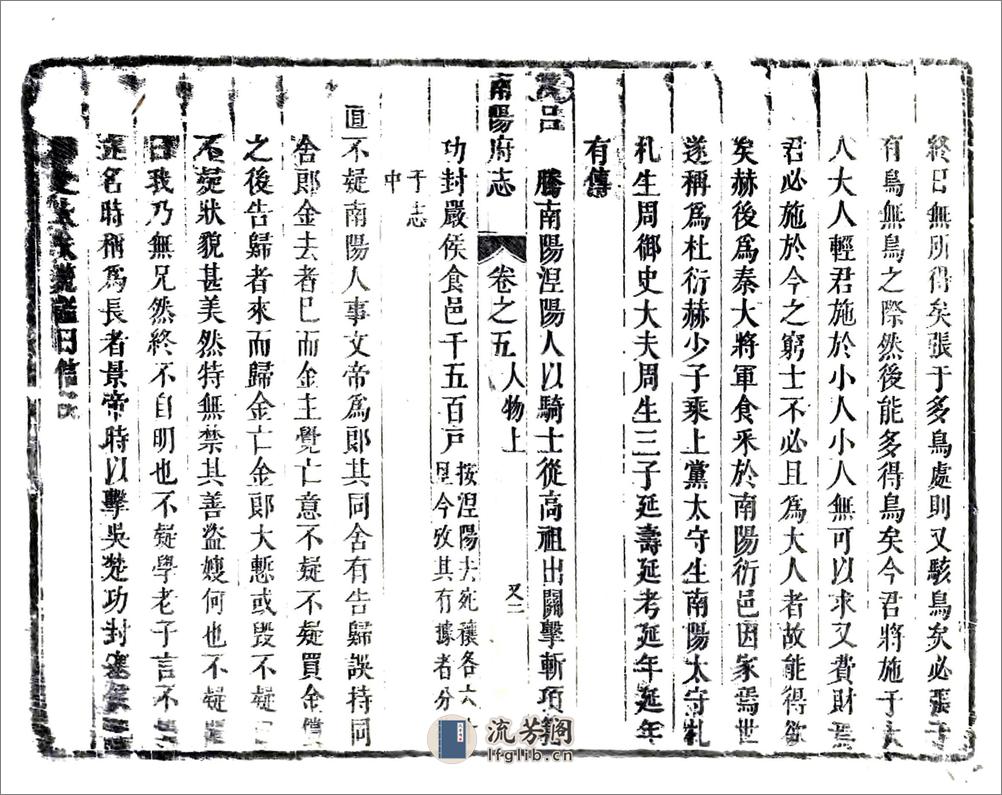 終日無所得矣張于多鳥處則又駭鳥矣必張于
有鳥無鳥之際然後能多得鳥矣今君將施于大
人大人輕君施於小人小人無可以求又費財焉
君必施於今之窮士不必且為大人者故能得欲
矣赫後為秦大將軍食采於南陽衍邑因家焉世
遂稱為杜衍赫少子秉上黨太守生南陽太守札
札生周御史大夫周生三子延壽延考延年延年
有傳
呂 騰南陽涅陽人以騎士從高祖出關擊斬項
南陽府志 卷之五 人物上 又二
功封嚴侯食邑千五百戶 按涅陽夫死穰各六
今攷其有據者分
于志
中
直不疑南陽人事文帝為郎其同舍有告歸誤持同
舍郎金去者已而金主覺亡意不疑不疑買金償
之後告歸者來而歸金亡金郎大慙或毀不疑曰
不疑狀貌甚美然特無禁其善盜嫂何也不疑
曰我乃無兄然終不自明也不疑學老子言不
名時稱為長者景帝時以擊吳楚功封塞侯
曰
流芳閣
lfglib.cn